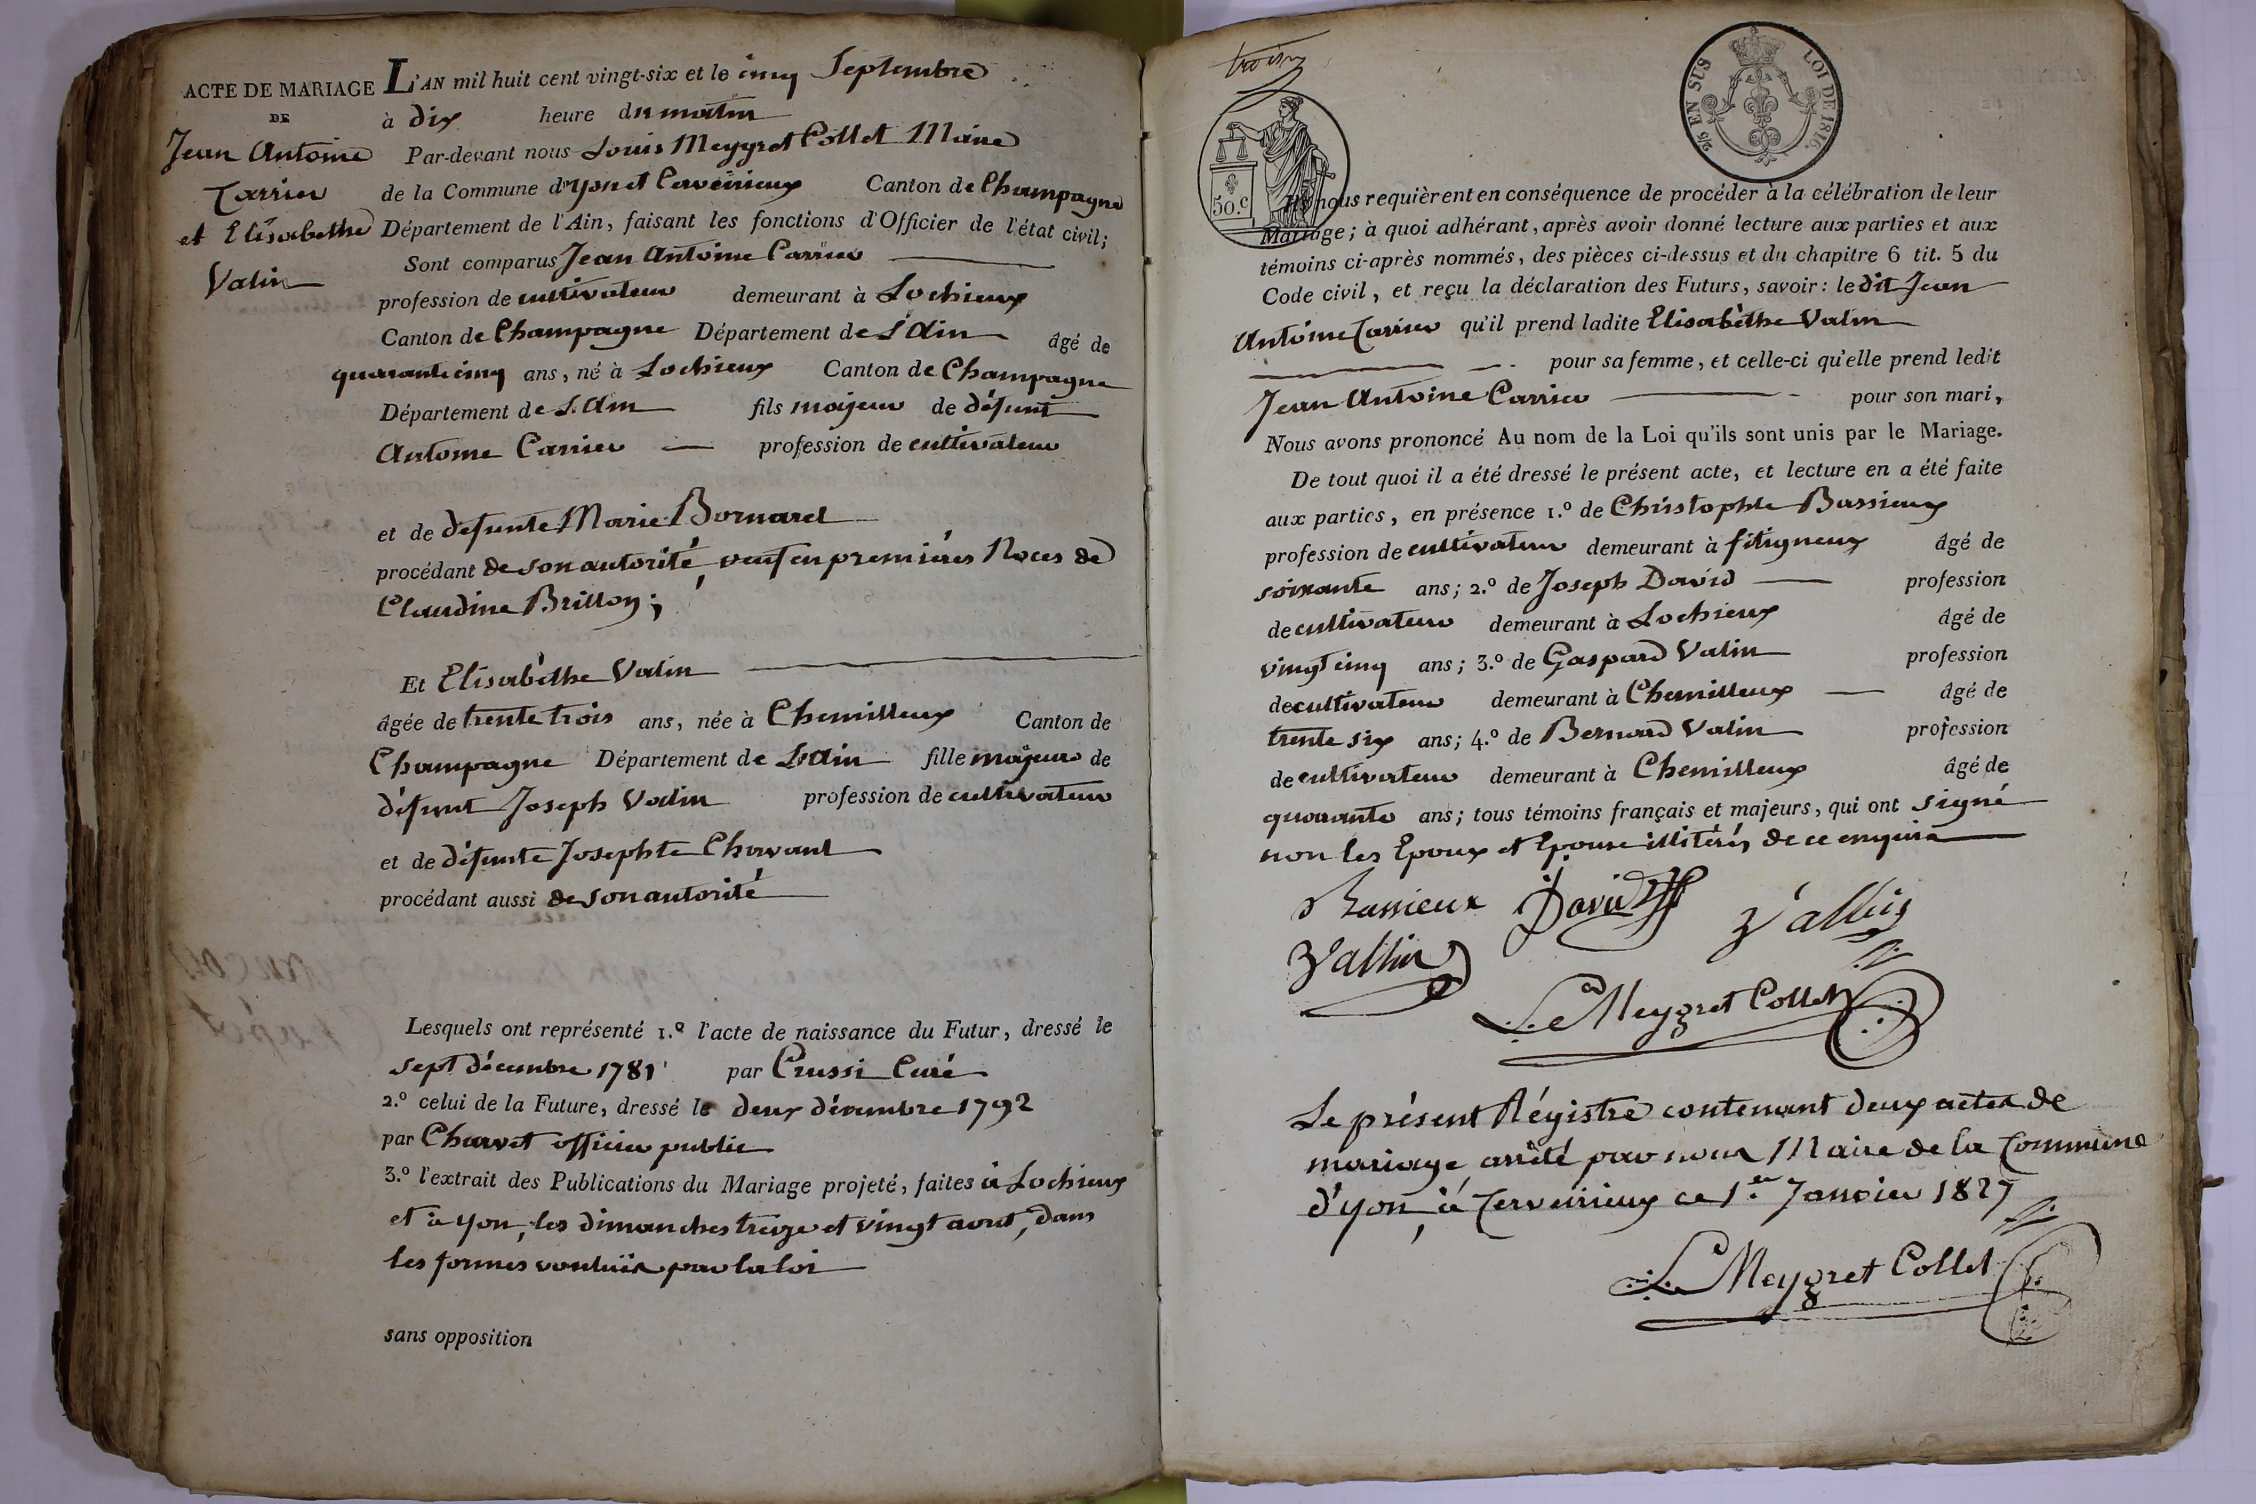 ACTE DE MARIAGE
DE
Jean Antoine
Carrier
et Elisabethe
Valin
L'AN mil huit cent vingt-six et le cinq Septembre
à dix heure du matin
Par-devant nous Louis Meygret Collet Maire
de la Commune d'yon et Cerveirieux Canton de Champagne
Département de l'Ain, faisant les fonctions d'Officier de l'état civil;
Sont comparus Jean Antoine Carrier
profession de cultivateur demeurant à Lochieux
Canton de Champagne Département de L'Ain âgé de
quarante cinq ans, né à Lochieux Canton de Champagne
Département de L'Ain fils majeur de défunt
Antoine Carrier profession de cultivateur
et de defunte Marie Bornard
procédant de son autorité, veuf en premières Noces de
Claudine Brillon;
Et Elisabèthe Valin
âgée de trente trois ans, née à Chemilleux Canton de
Champagne Département de L'Ain fille majeure de
défunt Joseph Valin profession de cultivateur
et de défunte Josephte Charvant
procédant aussi de son autorité
Lesquels ont représenté 1.º l'acte de naissance du Futur, dressé le
sept décembre 1781 par Crussi Curé
2.º celui de la Future, dressé le deux décembre 1792
par Charvet officier public
3.º l'extrait des Publications du Mariage projeté, faites à Lochieux
et à yon, les dimanches treize et vingt aout, dans
les formes voulües par la loi
sans opposition
trois
50.c
25 EN SUS
LOI DE 1816.
Ils nous requièrent en conséquence de procéder à la célébration de leur
Mariage; à quoi adhérant, après avoir donné lecture aux parties et aux
témoins ci-après nommés, des pièces ci-dessus et du chapitre 6 tit. 5 du
Code civil, et reçu la déclaration des Futurs, savoir: le dit Jean
Antoine Carrier qu'il prend ladite Elisabèthe Valin
pour sa femme, et celle-ci qu'elle prend ledit
Jean Antoine Carrier pour son mari,
Nous avons prononcé Au nom de la Loi qu'ils sont unis par le Mariage.
De tout quoi il a été dressé le présent acte, et lecture en a été faite
aux parties, en présence 1.º de Christophle Bassieux
profession de cultivateur demeurant à fitigneux âgé de
soixante ans; 2.º de Joseph David profession
de cultivateur demeurant à Lochieux âgé de
vingt cinq ans; 3.º de Gaspard Valin profession
de cultivateur demeurant à Chemilleux âgé de
trente six ans; 4.º de Bernard Valin profession
de cultivateur demeurant à Chemilleux âgé de
quarante ans; tous témoins français et majeurs, qui ont signé
non les Epoux et Epouse illiterés de ce enquis
Bassieux David Vallin
Vallin
L. Meygret Collet
Le présent Régistre contenant deux actes de
mariage arrêté par nous Maire de la Commune
d'yon, à Cerveirieux ce 1.er Janvier 1827
L Meygret Collet